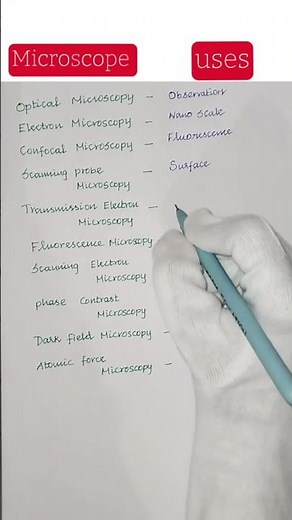 Microscope uses
Optical Microscopy - Observation
Electron Microscopy - Nano Scale
Confocal Microscopy - Fluorescence
Scanning probe
Microscopy - Surface
Transmission Electron -
Microscopy
Fluorescence Microscopy
Scanning Electron
Microscopy
phase Contrast
Microscopy
Dark field Microscopy -
Atomic force
Microscopy -